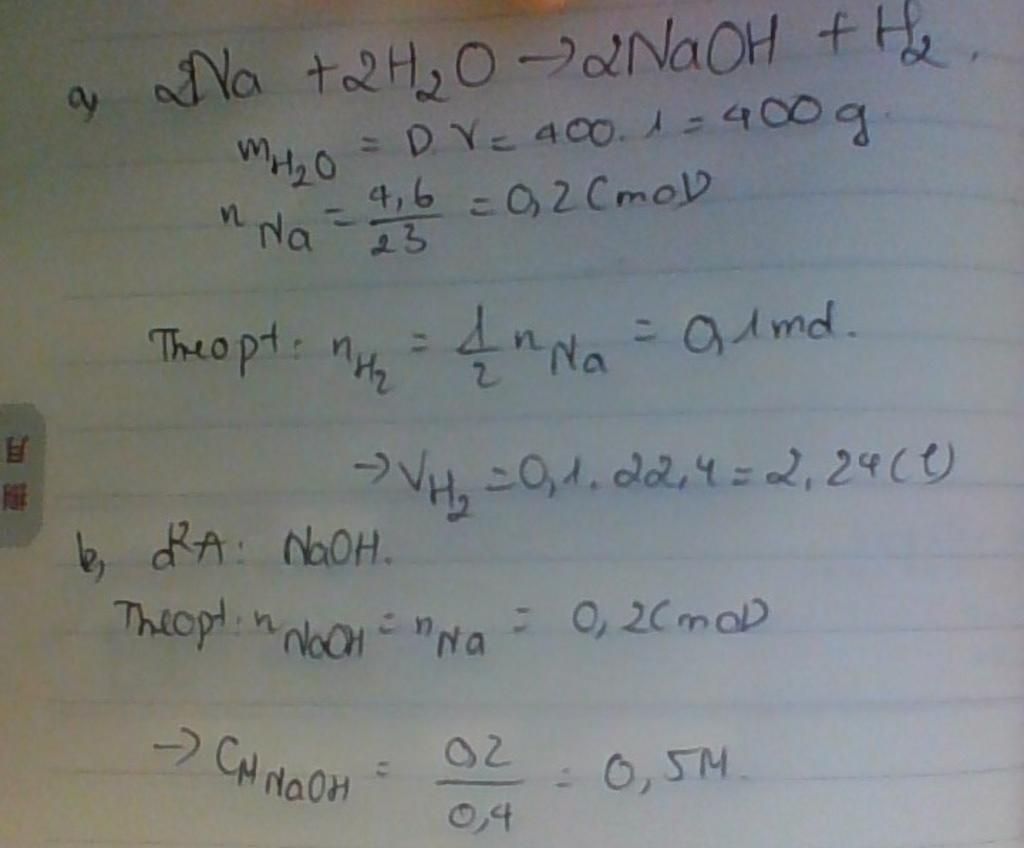 a, 2Na + 2H₂O → 2NaOH + H₂.
mH₂O = D.V = 400.1 = 400g.
nNa = 4,6/23 = 0,2(mol)
Theopt: nH₂ = 1/2 nNa = 0,1mol.
→ VH₂ = 0,1.22,4 = 2,24(l)
b, d²A: NaOH.
Theopt: nNaOH = nNa = 0,2(mol)
→ CM NaOH = 0,2/0,4 = 0,5M.